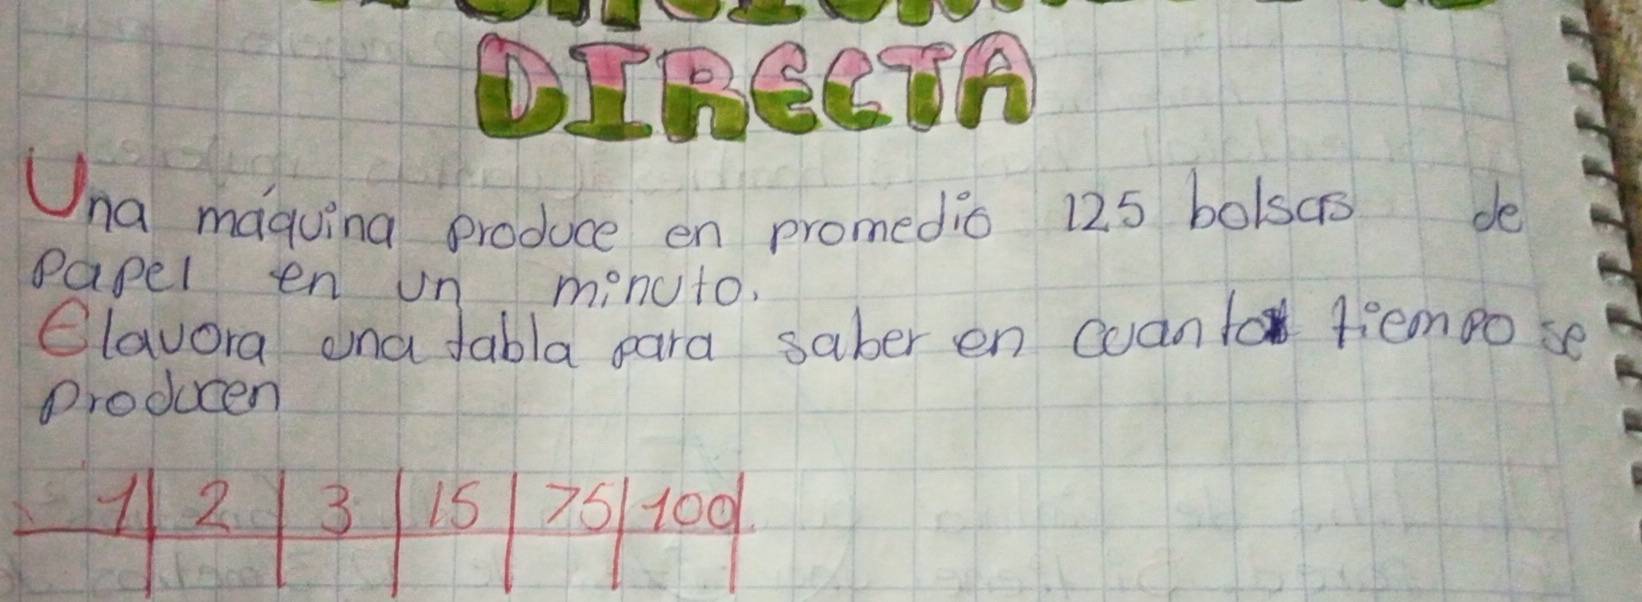 DIRECTA
Una máquina produce en promedio 125 bolsas de
papel en un minuto.
Elavora una tabla para saber en cuanto tiempo se
producen
1 | 2 | 3 | 15 | 75 | 100